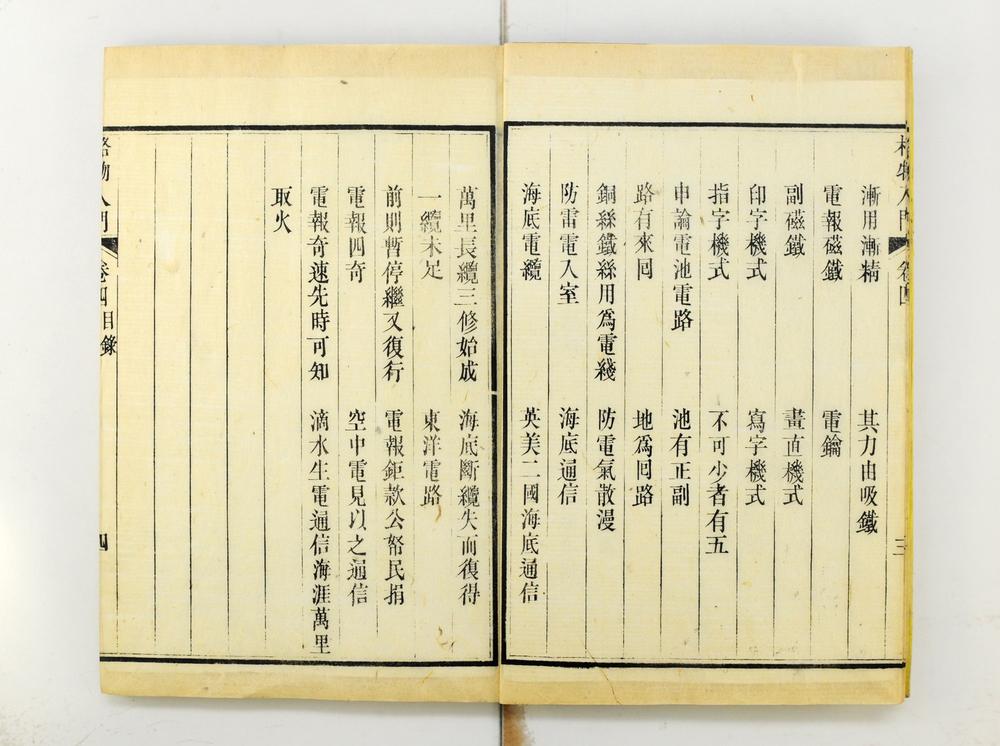 格物入門 卷四 三
漸用漸精 其力由吸鐵
電報磁鐵 電鑰
副磁鐵 畫直機式
印字機式 寫字機式
指字機式 不可少者有五
申論電池電路 池有正副
路有來囘 地爲囘路
銅絲鐵絲用爲電綫 防電氣散漫
防雷電入室 海底通信
海底電纜 英美二國海底通信
萬里長纜三修始成 海底斷纜失而復得
一纜未足 東洋電路
前則暫停繼又復行 電報鉅款公帑民捐
電報四奇 空中電見以之通信
電報奇速先時可知 滴水生電通信海涯萬里
取火
格物入門 卷四目錄 四